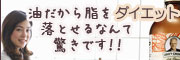 油だから脂を
落とせるなんて
驚きです!!
ダイエット